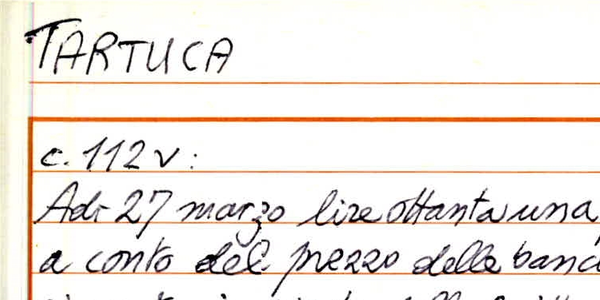 TARTUCA
c. 112 v :
Adi 27 marzo lire ottanta una,
a conto del prezzo delle